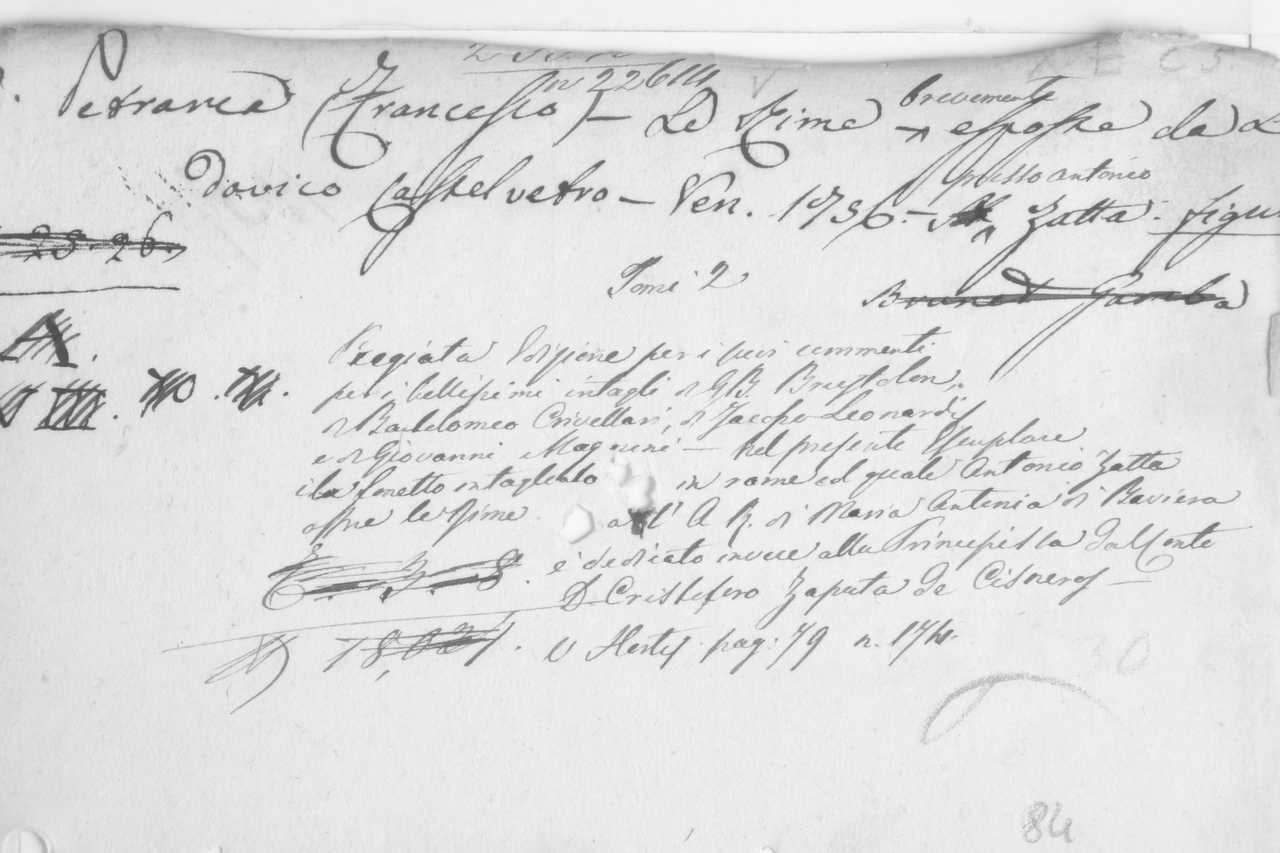 in 22614
Petrarca (Francesco) – Le Rime brevemente esposte da L
dovico Castelvetro – Ven. 1756 – presso Antonio Zatta. figu
23. 26.
Tomi 2
Brunet Gamba
A
Pregiata Edizione per i suoi commenti
per i bellissimi intagli di G.B. Brustolon,
di Bartolomeo Crivellari, di Jacopo Leonardis
e di Giovanni Magnini – nel presente Esemplare
il sonetto intagliato in rame col quale Antonio Zatta
offre le Rime all' A. R. di Maria Antonia di Baviera
è dedicato invece alla Principessa
D. Cristoforo Zapata de Cisneros –
V pag: 79 n. 174.
30
84